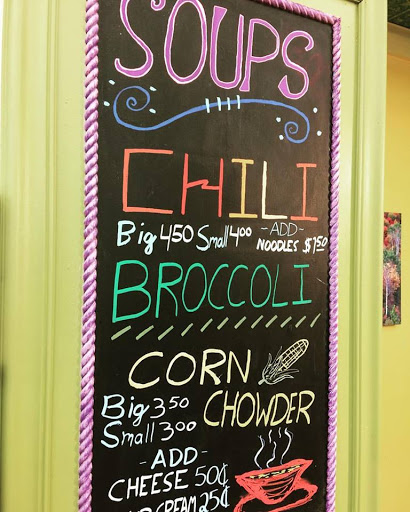 SOUPS
CHILI
Big 4.50 Small 4.00 -ADD- NOODLES $1.50
BROCCOLI
CORN
Big 3.50 CHOWDER
Small 3.00
-ADD-
CHEESE 50¢
CREAM 25¢